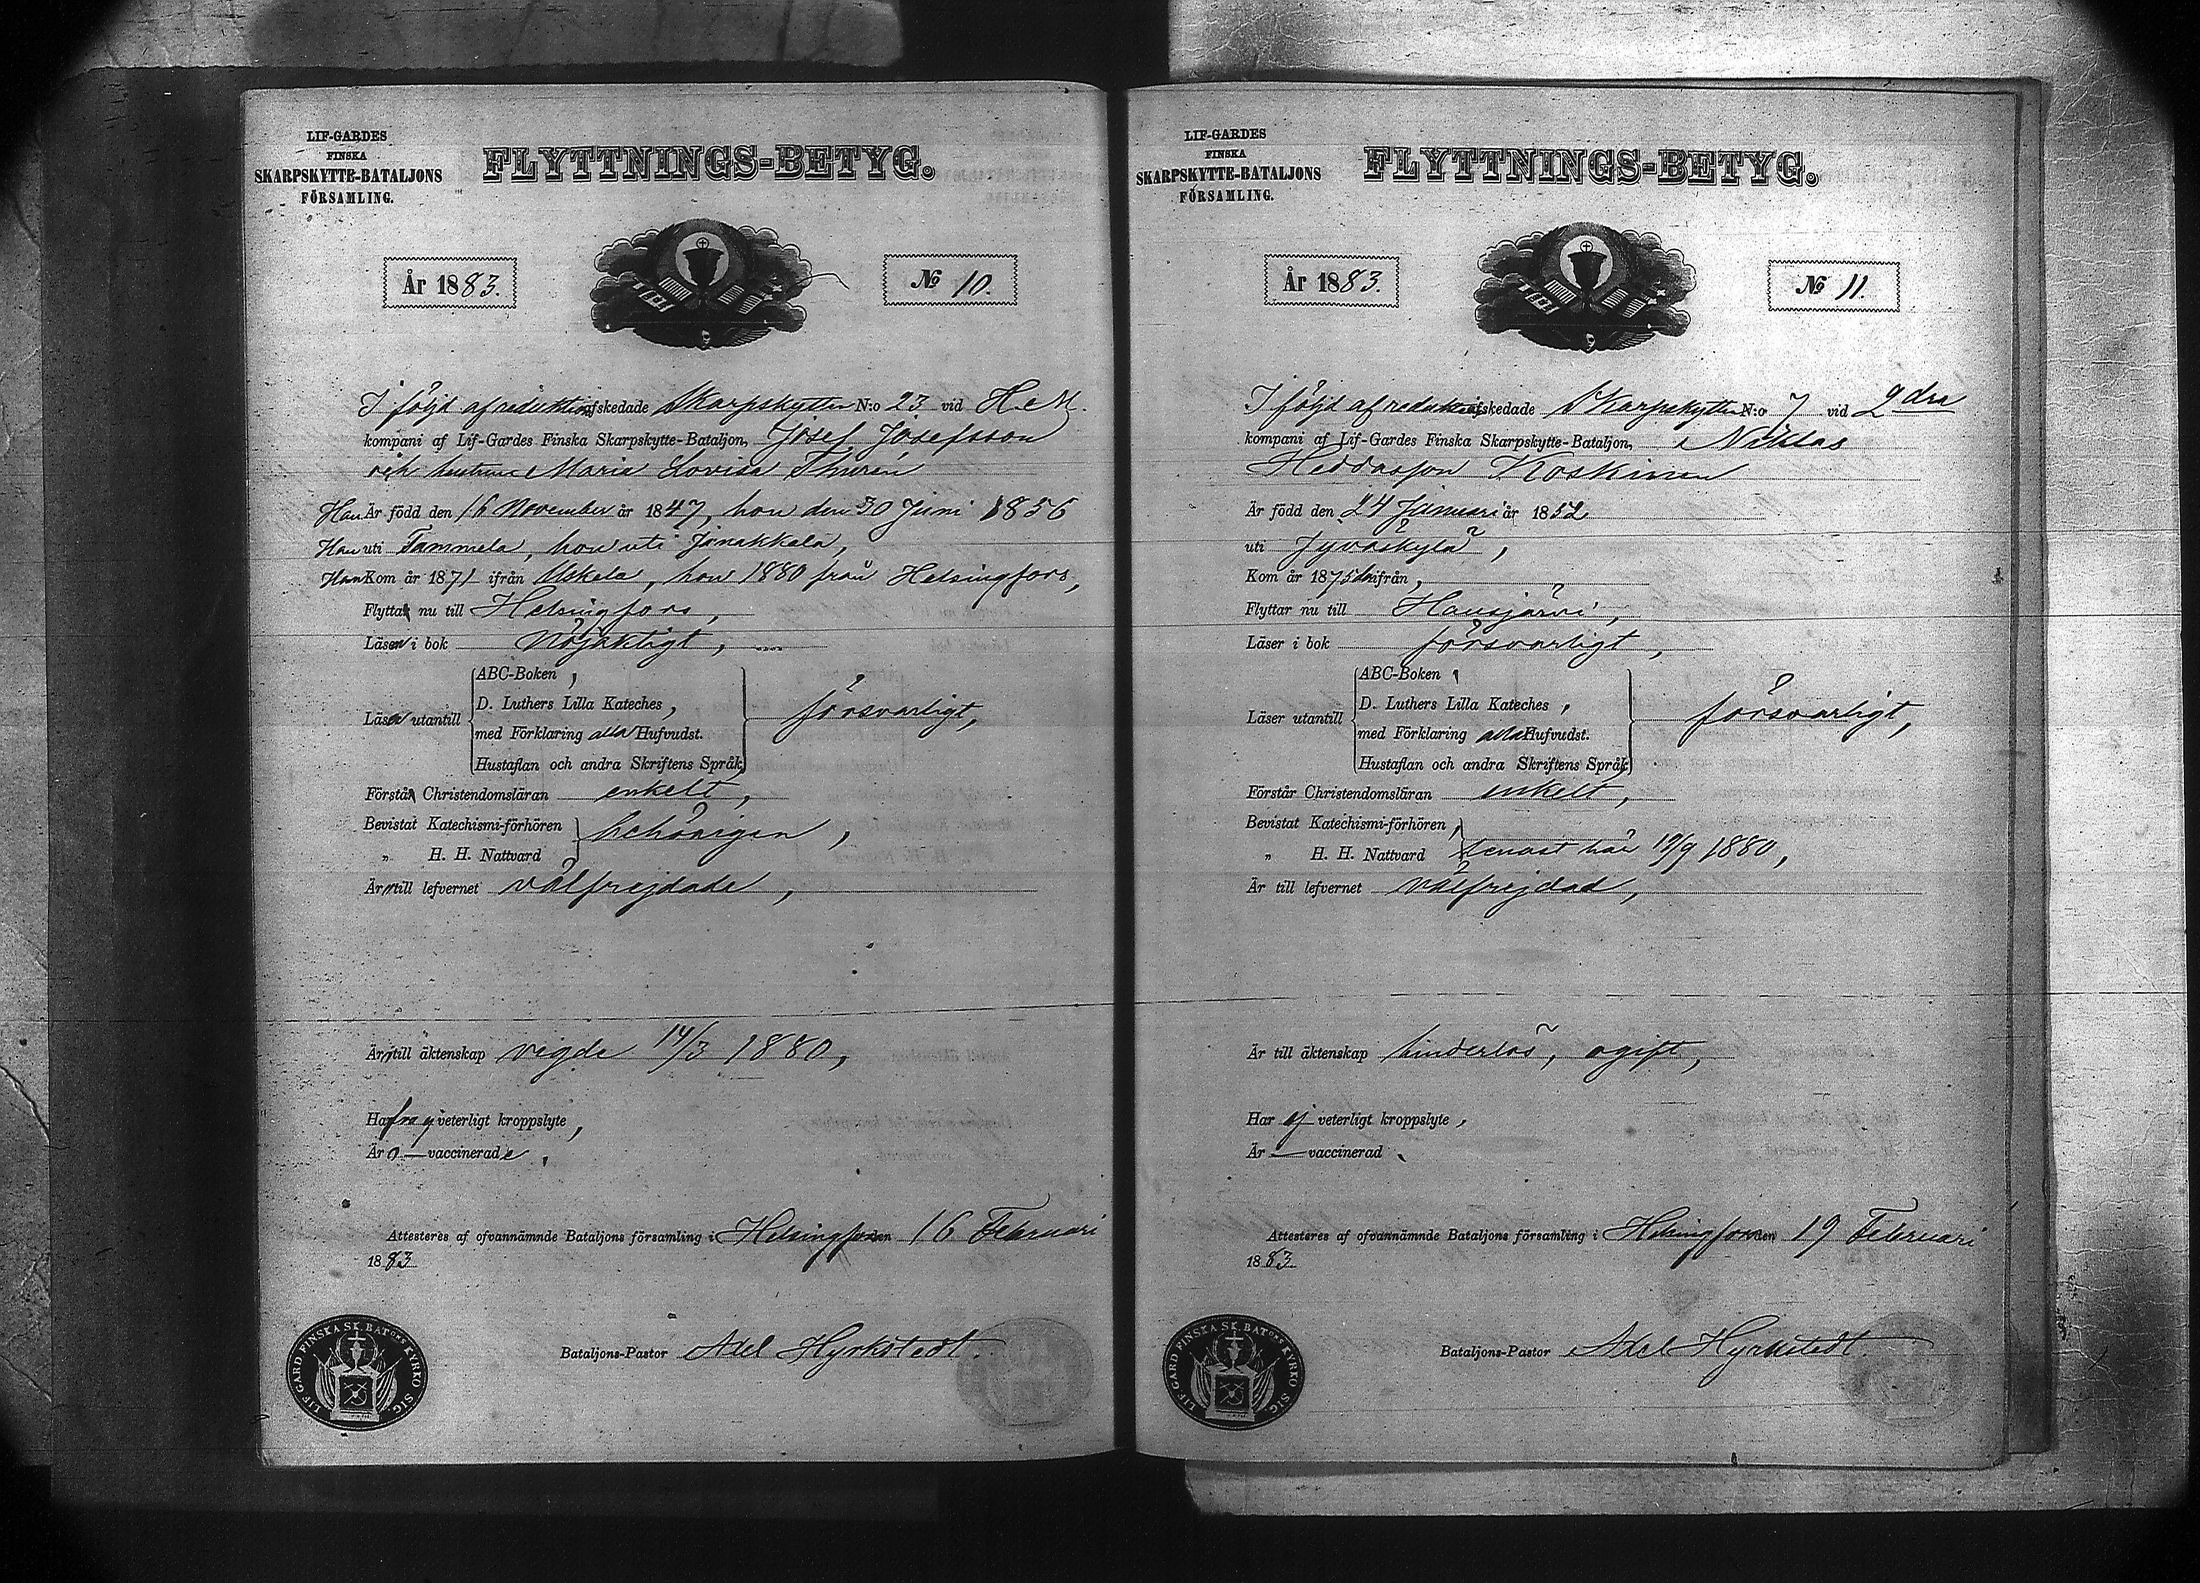 LIF-GARDES
FINSKA
SKARPSKYTTE-BATALJONS
FÖRSAMLING.
FLYTTNINGS-BETYG.
År 1883.
№ 10.
I följd af reduktion afskedade Skarpskytten N:o 23 vid H. e. M.
kompani af Lif-Gardes Finska Skarpskytte-Bataljon, Josef Josefsson
och hustrun Maria Lovisa Thurén
Han Är född den 16 November år 1847, hon den 30 Juni 1856
Han uti Tammela, hon uti Janakkala,
Han Kom år 1871 ifrån Uskela, hon 1880 från Helsingfors,
Flytta nu till Helsingfors,
Läsa i bok nöjaktigt,
ABC-Boken,
D. Luthers Lilla Kateches,
Läsa utantill försvarligt,
med Förklaring alla Hufvudst.
Hustaflan och andra Skriftens Språk
Förstå Christendomsläran enkelt,
Bevistat Katechismi-förhören behörigen,
„ H. H. Nattvard
Äro till lefvernet välfrejdade,
Äro till äktenskap vigde 14/3 1880,
Hafva ej veterligt kroppslyte,
Äro — vaccinerade.
Attesteres af ofvannämnde Bataljons församling i Helsingfors den 16 Februari
1883.
Bataljons-Pastor Axel Hyrkstedt.
LIF GARD FINSKA SK. BATONS KYRKO SIG.
LIF-GARDES
FINSKA
SKARPSKYTTE-BATALJONS
FÖRSAMLING.
FLYTTNINGS-BETYG.
År 1883.
№ 11.
I följd af reduktion afskedade Skarpskytten N:o 7 vid 2dra
kompani af Lif-Gardes Finska Skarpskytte-Bataljon, Niklas
Heddasson Koskinen
Är född den 24 Januari år 1852
uti Jyväskylä,
Kom år 1875 ifrån,
Flyttar nu till Hausjärvi,
Läser i bok försvarligt,
ABC-Boken,
D. Luthers Lilla Kateches,
Läser utantill försvarligt,
med Förklaring alla Hufvudst.
Hustaflan och andra Skriftens Språk
Förstår Christendomsläran enkelt,
Bevistat Katechismi-förhören,
„ H. H. Nattvard senast här 19/9 1880,
Är till lefvernet välfrejdad,
Är till äktenskap hinderlös, ogift,
Har ej veterligt kroppslyte,
Är — vaccinerad.
Attesteres af ofvannämnde Bataljons församling i Helsingfors den 19 Februari
1883.
Bataljons-Pastor Axel Hyrkstedt.
LIF GARD FINSKA SK. BATONS KYRKO SIG.